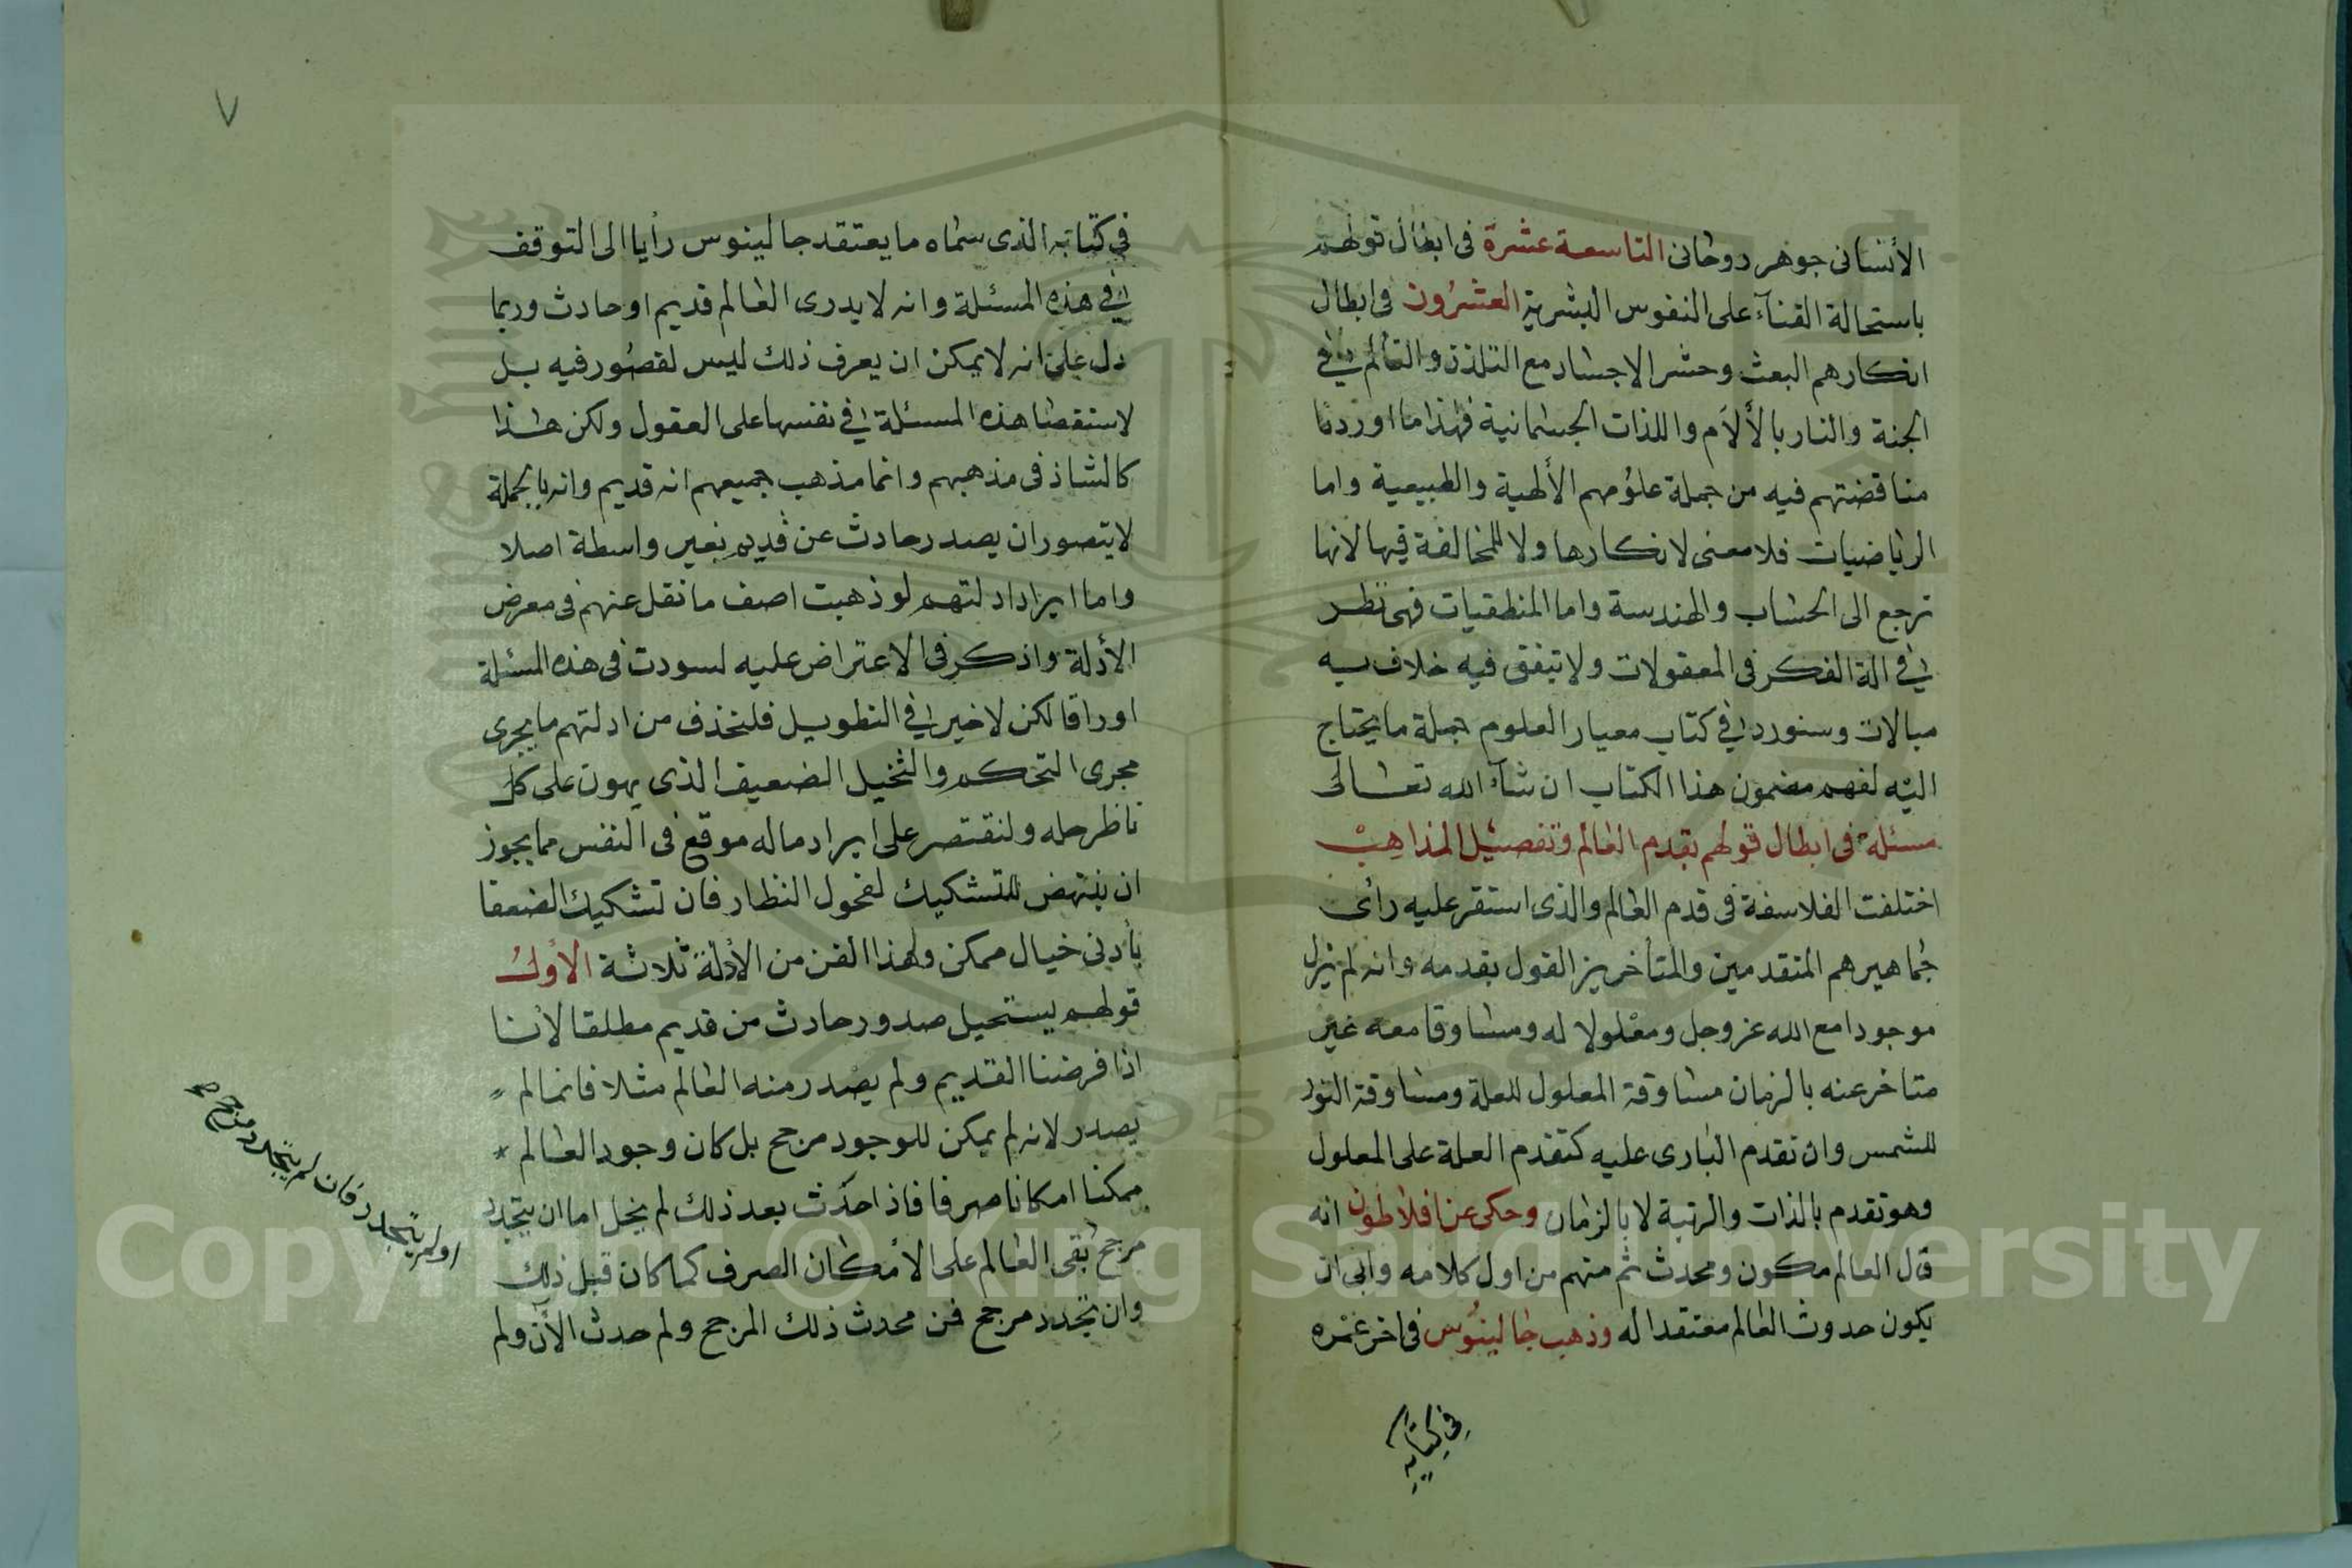 الأنسانى جوهر روحانى التاسعة عشرة فى ابطال قولهم
باستحالة الفنآء على النفوس البشرية العشرون فى ابطال
انكارهم البعث وحشر الاجساد مع التلذذ والتألم في
الجنة والنار بالألآم واللذات الجسمانية فهذا ما اوردنا
مناقضتهم فيه من جملة علومهم الألهية والطبيعية واما
الرياضيات فلا معنى لانكارها ولا للمخالفة فيها لانها
ترجع الى الحساب والهندسة واما المنطقيات فهى نظر
في الة الفكر فى المعقولات ولا يتفق فيه خلاف به
مبالات وسنورد في كتاب معيار العلوم جملة ما يحتاج
اليه لفهم مضمون هذا الكتاب ان شآء الله تعالى
مسئلة فى ابطال قولهم بقدم العالم وتفصيل المذاهب
اختلفت الفلاسفة فى قدم العالم والذى استقر عليه رأى
جماهيرهم المتقدمين والمتأخرين القول بقدمه وانه لم يزل
موجودا مع الله عز وجل ومعلولا له ومساوقا معه غير
متاخر عنه بالزمان مساوقة المعلول للعلة ومساوقة النور
للشمس وان تقدم البارى عليه كتقدم العلة على المعلول
وهو تقدم بالذات والرتبة لا بالزمان وحكى عن افلاطون انه
قال العالم مكون ومحدث ثم منهم من اول كلامه وابى ان
يكون حدوث العالم معتقدا له وذهب جالينوس فى اخر عمره
في كتابه
٧
في كتابه الذى سماه ما يعتقد جالينوس رأيا الى التوقف
في هذه المسئلة وانه لا يدرى العالم قديم او حادث وربما
دل على انه لا يمكن ان يعرف ذلك ليس لقصور فيه بل
لاستقصا هذه المسئلة في نفسها على العقول ولكن هذا
كالشاذ فى مذهبهم وانما مذهب جميعهم انه قديم وانه بالجملة
لا يتصور ان يصدر حادث عن قديم بغير واسطة اصلا
واما ايراد ادلتهم لو ذهبت اصف ما نقل عنهم فى معرض
الأدلة واذكر فى الاعتراض عليه لسودت فى هذه المسئلة
اوراقا لكن لا خير في التطويل فلنحذف من ادلتهم ما يجرى
مجرى التحكم والتخيل الضعيف الذى يهون على كل
ناظر حله ولنقتصر على ايراد ما له موقع فى النفس مما يجوز
ان ينتهض للتشكيك لفحول النظار فان تشكيك الضعفا
بأدنى خيال ممكن ولهذا الفن من الأدلة ثلاثة الأول
قولهم يستحيل صدور حادث من قديم مطلقا لأنا
اذا فرضنا القديم ولم يصدر منه العالم مثلا فانما لم
يصدر لانه لم يمكن للوجود مرجح بل كان وجود العالم
ممكنا امكانا صرفا فاذا حدث بعد ذلك لم يخل اما ان يتجدد
مرجح بقى العالم على الأمكان الصرف كما كان قبل ذلك
وان تجدد مرجح فمن محدث ذلك المرجح ولم حدث الآن ولم
او لم يتجدد فان لم يتجدد مرجح
Copyright © King Saud University